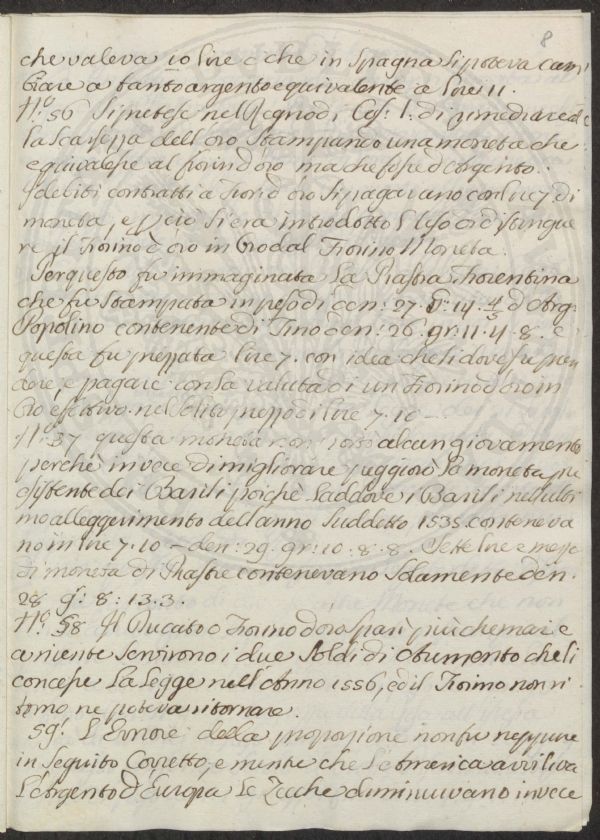 8
che valeva 10 lire e che in Spagna si poteva cam
biare a tanto argento equivalente a lire 11.
N.° 56 Si pretese nel Regno di Cos: I. di rimediare al
la scarsezza dell'oro, stampando una moneta che
equivalesse al fiorino d'oro ma che fosse d'Argento.
I debiti contratti a Fiorini d'oro si pagavano con lire 7 di
moneta, e perciò si era introdotto l'uso di distingue
re il Fiorino d'oro in oro dal Fiorino Moneta.
Per questo fu immaginata La Piastra Fiorentina
che fu stampata in peso di den: 27. gr: 14 4/5 d'Arg.
Popolino contenente di Fino den: 26. gr: 11. 4. 8. e
questa fu prezzata lire 7. con idea che si dovesse pren
dere, e pagare con la valuta di un Fiorino d'oro in
Oro effettivo nel solito prezzo di lire 7. 10 –
N: 57 questa moneta non portò alcun giovamento
perchè invece di migliorare peggiorò la moneta pre
esistente dei Barili poichè laddove i Barili nell'ulti
mo alleggerimento dell'anno suddetto 1535. conteneva
no in lire 7. 10 – den: 29. gr: 10. 8. 8. Sette lire e mezzo
di moneta di Piastre contenevano solamente den.
28 gr: 8: 13. 3.
N.° 58 Il Ducato o Fiorino d'oro sparì più che mai e
a niente servirono i due Soldi di Aumento che li
concesse La Legge nell'Anno 1556, ed il Fiorino non ri
tornò ne poteva ritornare.
59. L'Errore della proporzione non fu neppure
in seguito Corretto, e mentre che L'America avviliva
L'Argento d'Europa Le Zecche diminuivano invece